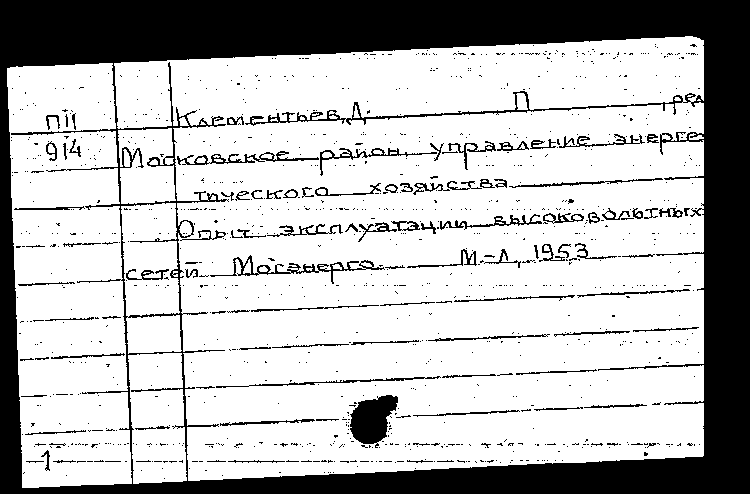 ПII Клементьев, Д. П , ред
914 Московское район. управление энерге-
тического хозяйства
Опыт эксплуатации высоковольтных
сетей Мосэнерго. М-Л, 1953
1